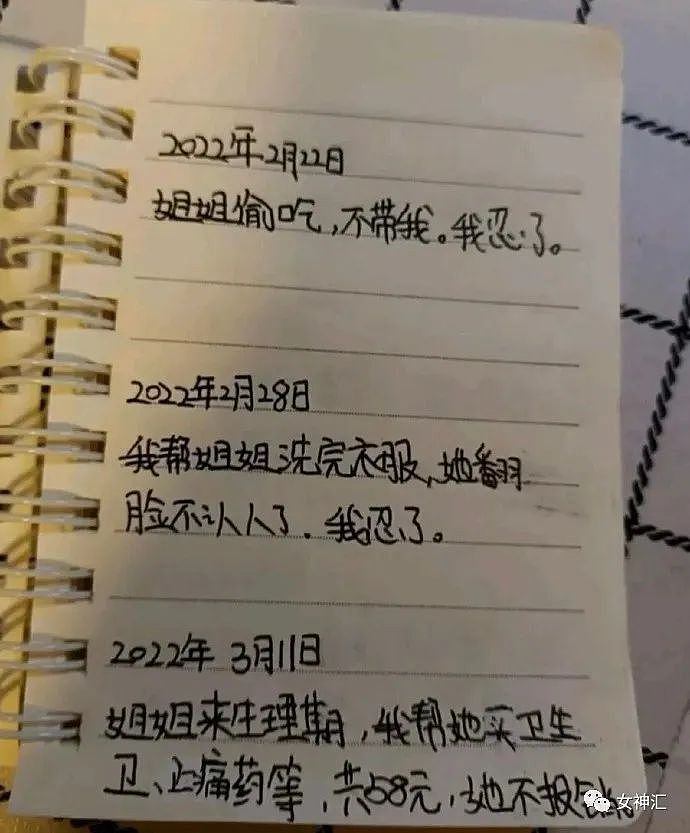 2022年2月22日
姐姐偷吃,不带我。我忍了。
2022年2月28日
我帮姐姐洗完衣服,她翻
脸不认人了.我忍了。
2022年3月11日
姐姐来生理期,我帮她买卫生
卫、止痛药等,共58元,她不报
女神汇